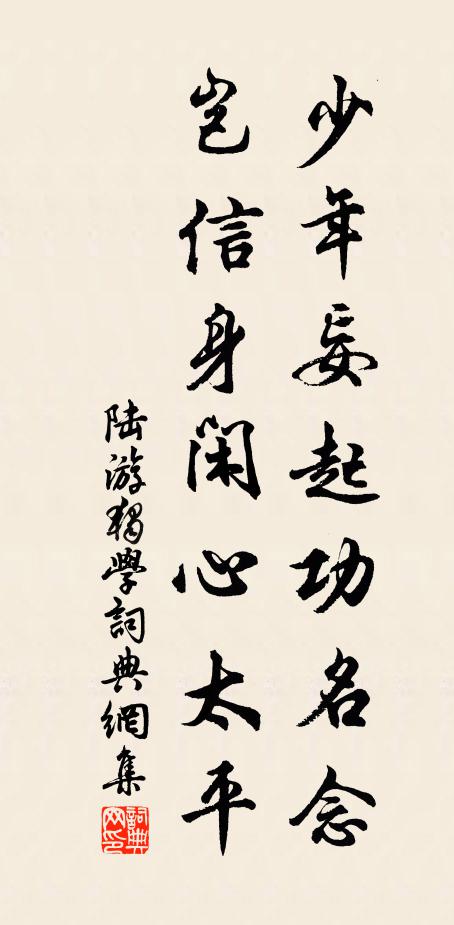 少年妄起功名念
岂信身闲心太平
陆游独学詞典網集
詞典网印